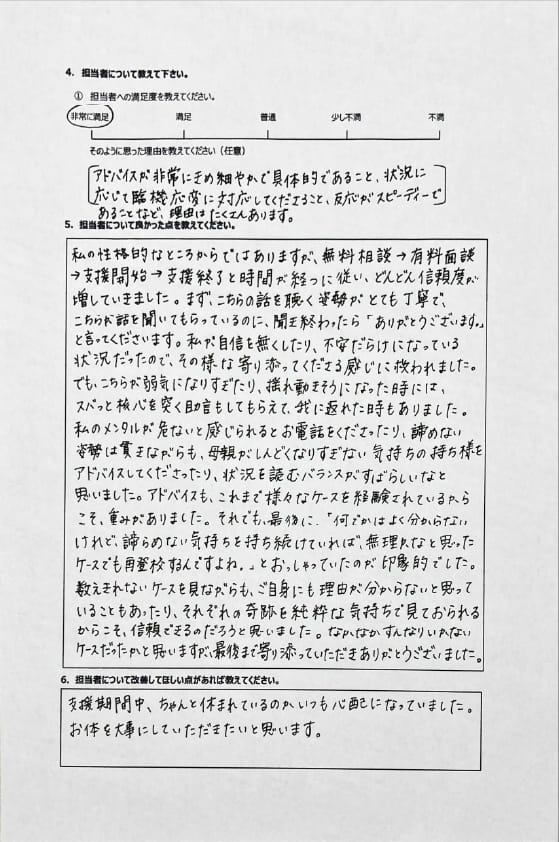 4. 担当者について教えて下さい。
① 担当者への満足度を教えてください。
非常に満足 満足 普通 少し不満 不満
そのように思った理由を教えてください（任意）
アドバイスが非常にきめ細やかで具体的であること、状況に
応じて臨機応変に対応してくださること、反応がスピーディーで
あることなど、理由はたくさんあります。
5. 担当者について良かった点を教えてください。
私の性格的なところからではありますが、無料相談→有料面談
→支援開始→支援終了と時間が経つに従い、どんどん信頼度が
増していきました。まず、こちらの話を聴く姿勢がとても丁寧で、
こちらが話を聞いてもらっているのに、聞き終わったら「ありがとうございます。」
と言ってくださいます。私が自信を無くしたり、不安だらけになっている
状況だったので、その様な寄り添ってくださる感じに救われました。
でも、こちらが弱気になりすぎたり、揺れ動きそうになった時には、
スパッと核心を突く助言もしてもらえて、我に返れた時もありました。
私のメンタルが危ないと感じられるとお電話をくださったり、諦めない
姿勢は貫きながらも、母親がしんどくなりすぎない気持ちの持ち様を
アドバイスしてくださったり、状況を読むバランスがすばらしいなと
思いました。アドバイスも、これまで様々なケースを経験されているから
こそ、重みがありました。それでも、最後に、「何でかはよく分からない
けれど、諦らめない気持ちを持ち続けていれば、無理かなと思った
ケースでも再登校するんですよね。」とおっしゃっていたのが印象的でした。
数えきれないケースを見ながらも、ご自身にも理由が分からないと思って
いることもあったり、それぞれの奇跡を純粋な気持ちで見ておられる
からこそ、信頼できるのだろうと思いました。なかなかすんなりいかない
ケースだったかと思いますが、最後まで寄り添っていただきありがとうございました。
6. 担当者について改善してほしい点があれば教えてください。
支援期間中、ちゃんと休まれているのか、いつも心配になっていました。
お体を大事にしていただきたいと思います。